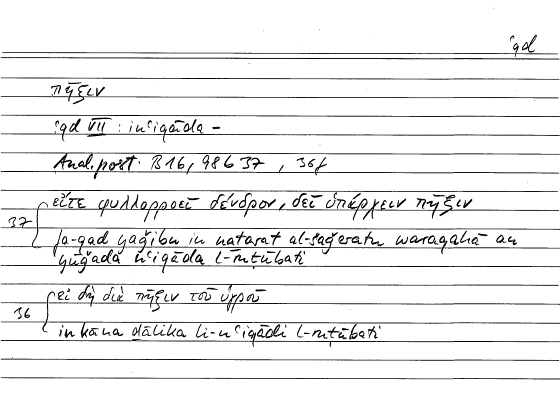 ʿqd
πῆξιν
ʿqd VII : inʿiqāda –
Anal. post. B 16, 98 b 37 , 36f
37 εἴτε φυλλορροεῖ δένδρον, δεῖ ὑπάρχειν πῆξιν
fa-qad yaǧibu in naṯarat al-šaǧeratu waraqahā an
yūǧada nʿiqāda l-ruṭūbati
36 εἰ δὴ διὰ πῆξιν τοῦ ὑγροῦ
in kāna ḏālika li-nʿiqādi l-ruṭūbati